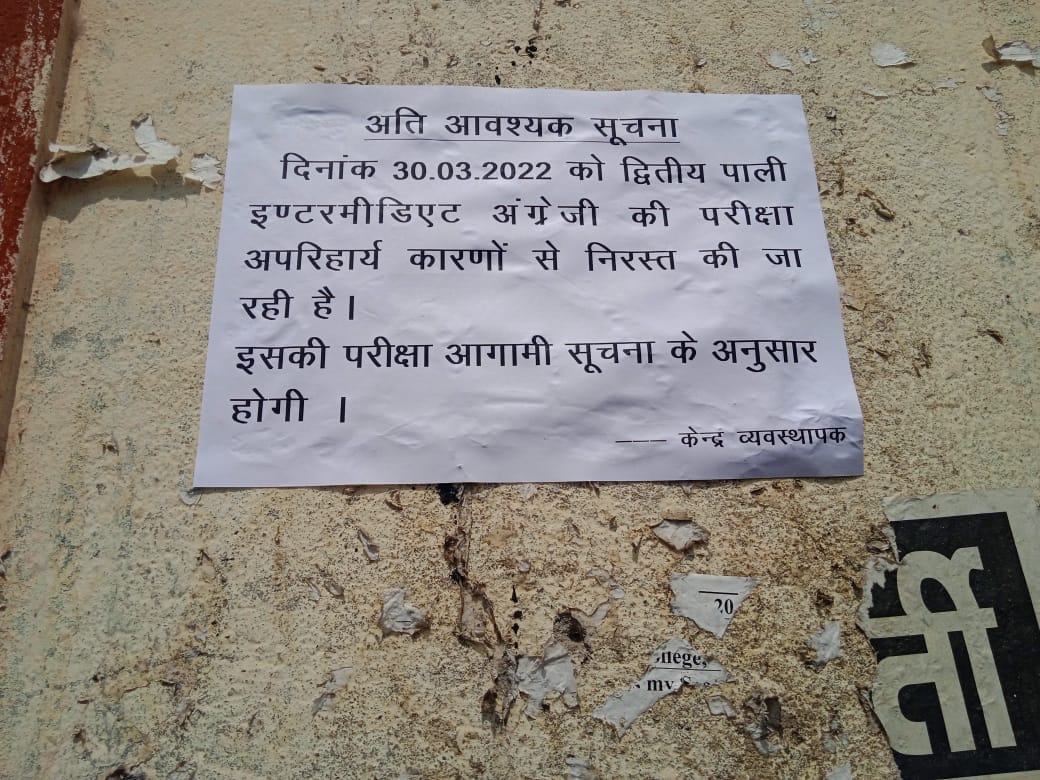 अति आवश्यक सूचना
दिनांक 30.03.2022 को द्वितीय पाली
इण्टरमीडिएट अंग्रेजी की परीक्षा
अपरिहार्य कारणों से निरस्त की जा
रही है।
इसकी परीक्षा आगामी सूचना के अनुसार
होगी ।
––– केन्द्र व्यवस्थापक
20
ती